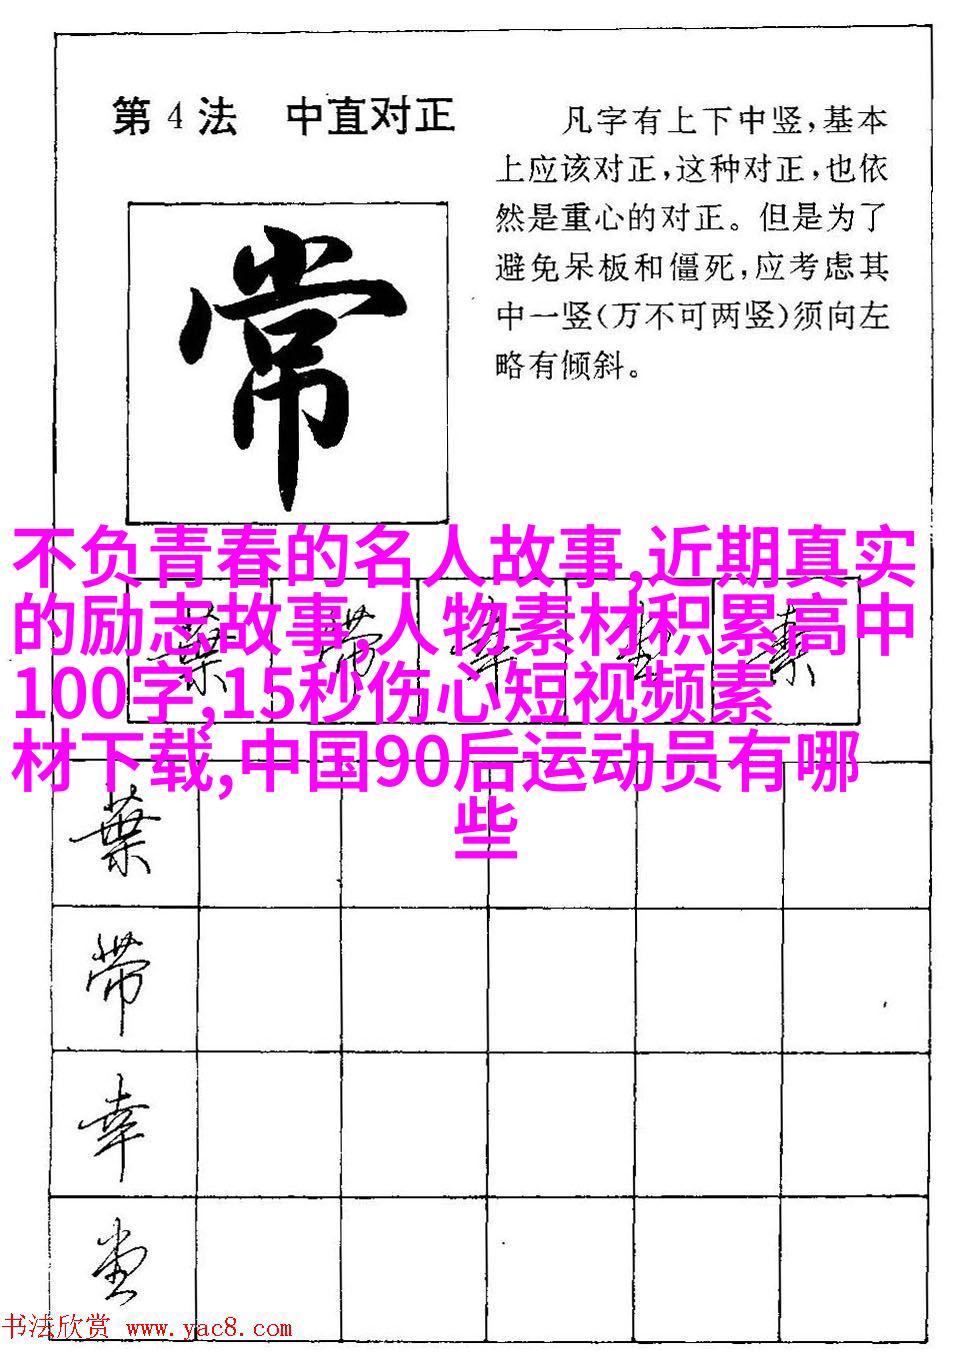 第4法 中直对正
凡字有上下中竖,基本
上应该对正,这种对正,也依
然是重心的对正。但是为了
避免呆板和僵死,应考虑其
中一竖(万不可两竖)须向左
略有倾斜。
常
不负青春的名人故事,近期真实
的励志故事,人物素材积累高中
100字,15秒伤心短视频素
材下载,中国90后运动员有哪
些
葉
带
幸
书法欣赏 www.yac8.com